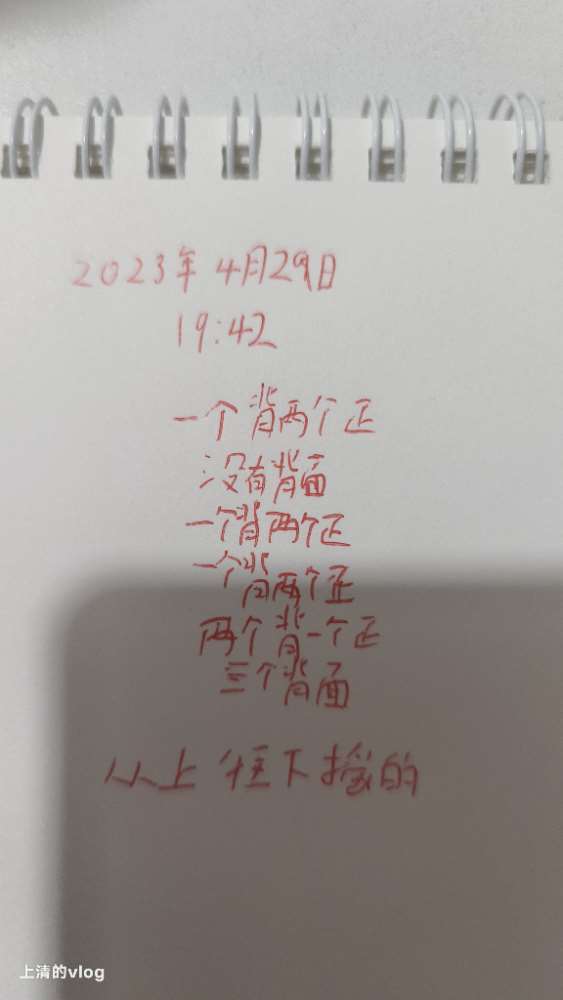 2023年4月29日
19:42
一个背两个正
没有背面
一个背两个正
一个背两个正
两个背一个正
三个背面
从上往下摇的
上清的vlog